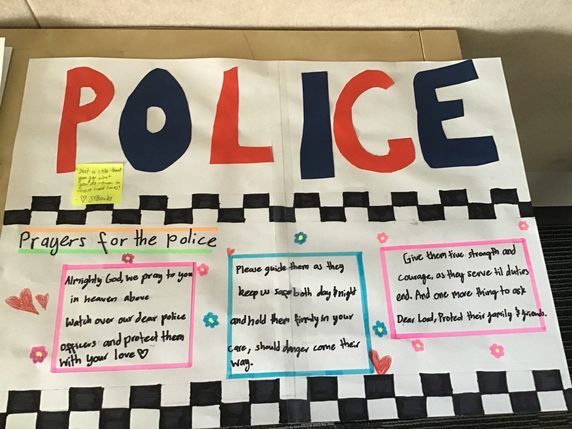 POLICE
Just a little thank
you for what
you do - even in
these hard times!
♡ St Bede's
Prayers for the police
Almighty God, we pray to you
in heaven above
Watch over our dear police
officers and protect them
with your love ♡
Please guide them as they
keep us safe both day & night
and hold them firmly in your
care, should danger come their
way.
Give them five strength and
courage, as they serve til duties
end. And one more thing to ask
Dear Load, Protect their family & friends.